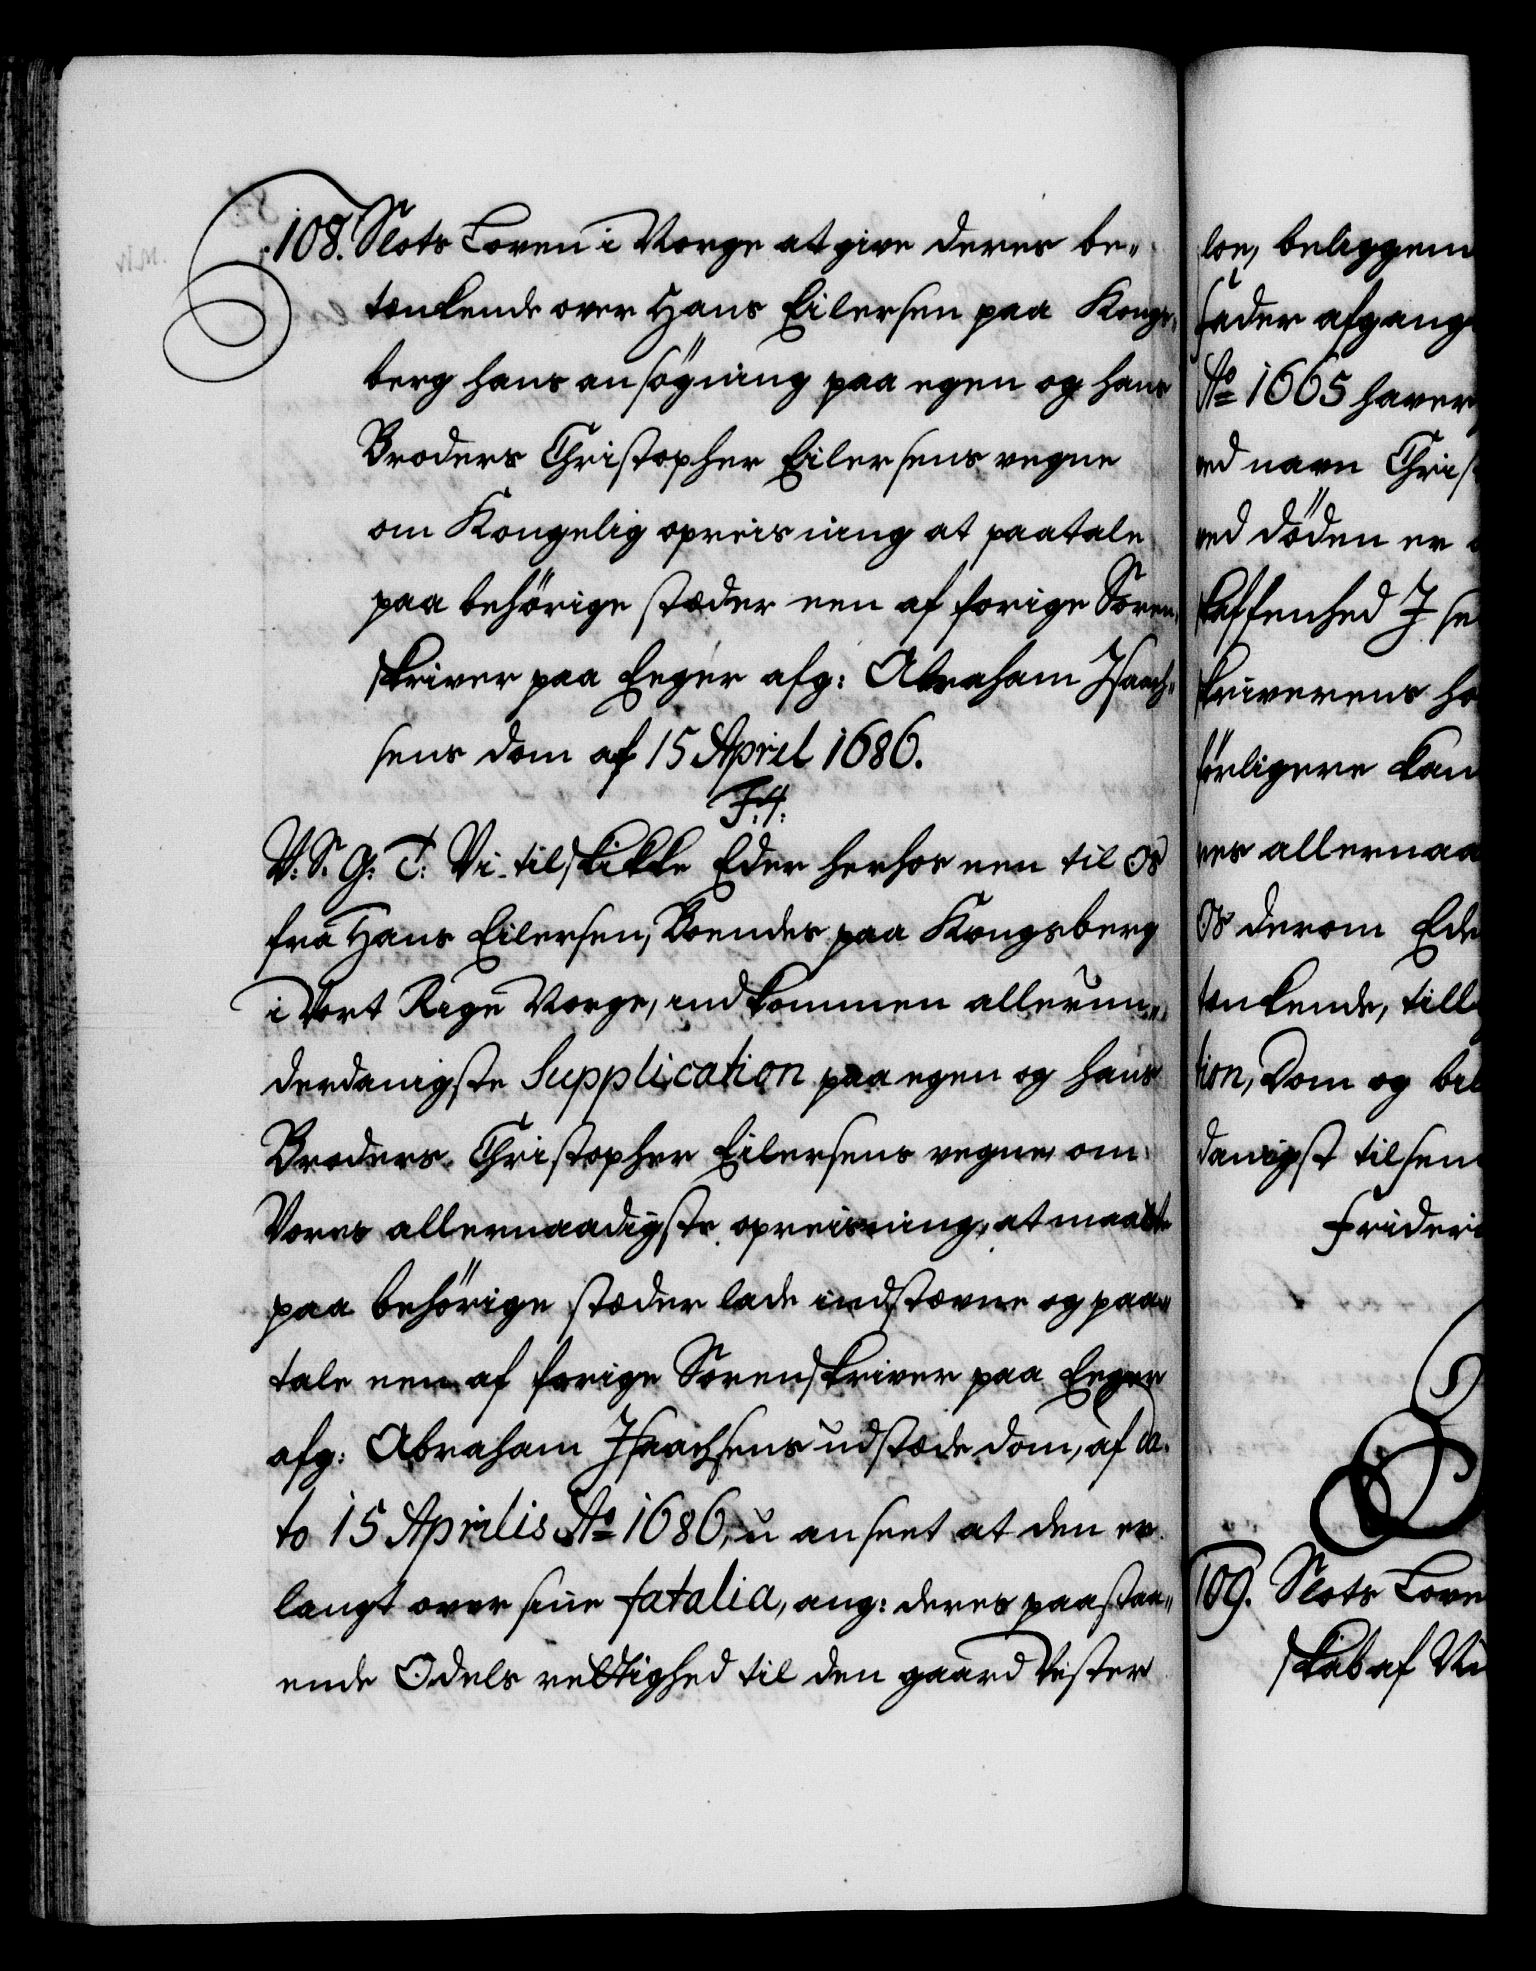 108. Slots Loven i Norge at give deres be„
tænkende over Hans Eilersen paa Kongs„
berg hans ansögning paa egen og hans
Broders Christopher Eilersens vegne
om Kongelig opreisning at paatale
paa behörige stæder een af forige Soren„
skriver paa Eeger afg: Abraham Isaach„
sens dom af 15 April 1686.
F. 4.
V. S. G. T. Vi tilskikke Eder herhos een til Os
fra Hans Eilersen, Boendes paa Kongsberg
i Vort Rige Norge, indkommen allerun„
derdanigste Supplication paa egen og hans
Broders Christopher Eilersens vegne om
Vores allernaadigste opreisning, at maatte
paa behörige stæder lade indstævne og paa„
tale een af forige Sorenskriver paa Eeger
afg: Abraham Isaachsens udstæde dom, af da„
to 15 Aprilis Ao 1686, u anseet at den er
langt over sine fatalia, ang: deres paastaa„
ende Odels rettighed til den gaard Vester
loe, beliggen
fader afgang
Ao 1665 haver
ved navn Chris
ved döden er
skaffenhed I se
skriverens ho
förligere kan
res allernaa
Os derom Ede
tænkende, till
tion, Dom og bil
danigst tilsen
Frideri
109. Slots Love
skab af Ni